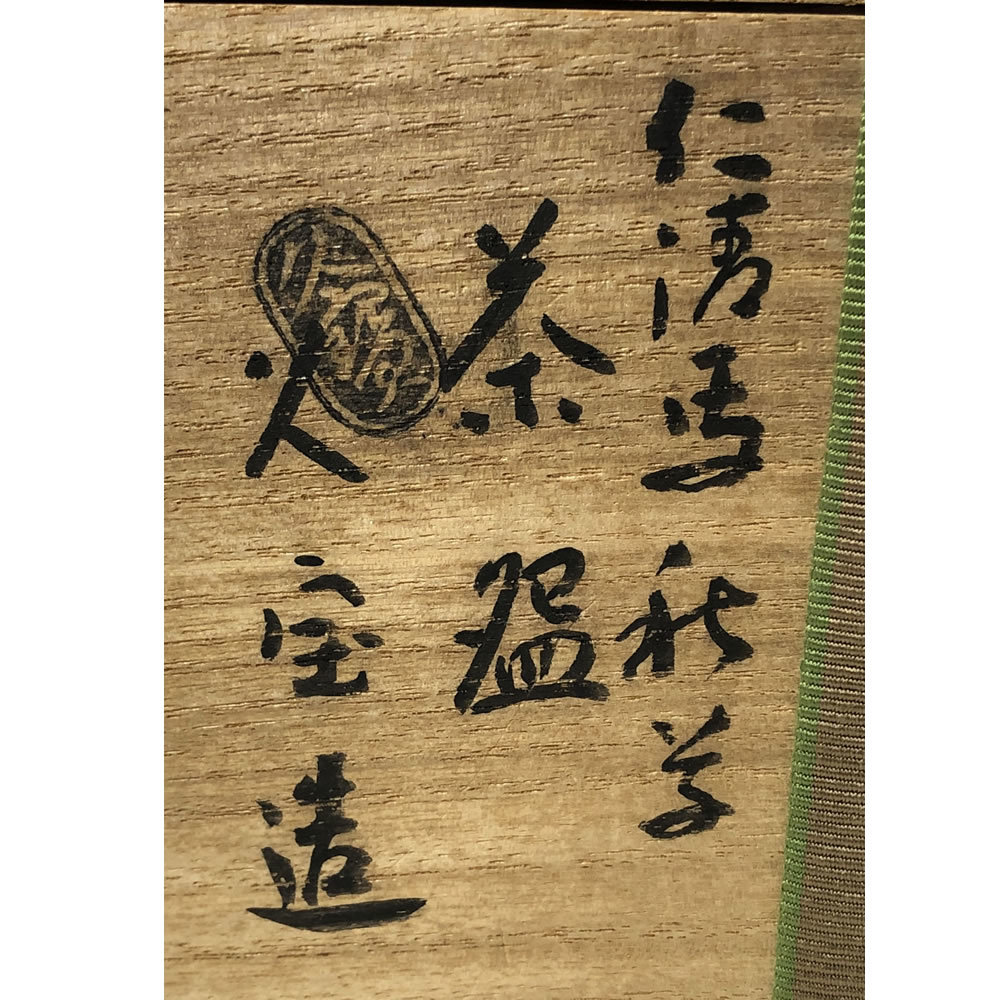 仁清写 秋草
茶盌
久宝造